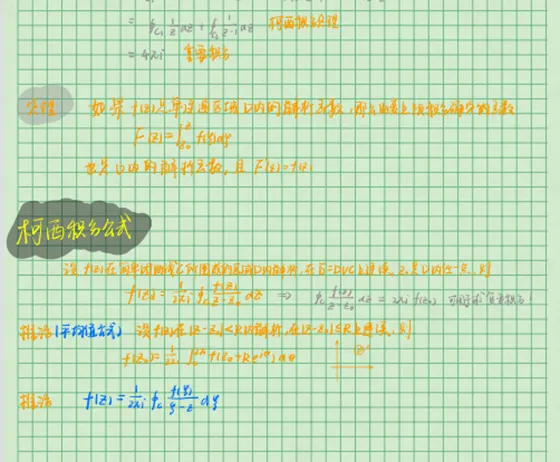 = ∮c₁ 1/z dz + ∮c₂ 1/(z-i) dz 柯西积分定理
= 4πi 重要积分
定理 如果 f(z)是单连通区域D内的解析函数, 那么由变上限积分确定的函数
F(z)=∫_{z₀}^{z} f(ζ)dζ
也是D内的解析函数, 且 F'(z)=f(z)
柯西积分公式
设 f(z)在简单闭曲线C所围成的区域D内解析, 在 D̄=D∪C上连续, z₀是D内任一点, 则
f(z₀)=1/(2πi) ∮c f(z)/(z-z₀) dz ⇒ ∮c f(z)/(z-z₀) dz = 2πi f(z₀) 可用于求复变积分!
推论(平均值公式) 设 f(z)在|z-z₀|<R内解析, 在|z-z₀|≤R上连续, 则
f(z₀)=1/(2π) ∫₀^{2π} f(z₀+Re^{iθ}) dθ
推论 f(z)=1/(2πi) ∮c f(ζ)/(ζ-z) dζ